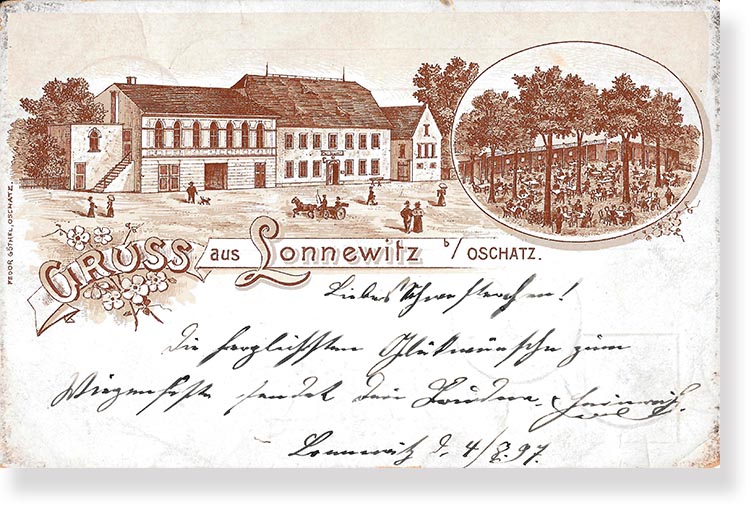 GRUSS aus Lonnewitz b/ OSCHATZ.
FEDOR GÖTHEL, OSCHATZ.
Liebes Schwesterchen!
Die herzlichsten Glückwünsche zum
Wiegenfeste sendet Dein Bruder
Lonnewitz d. 4/ 97.